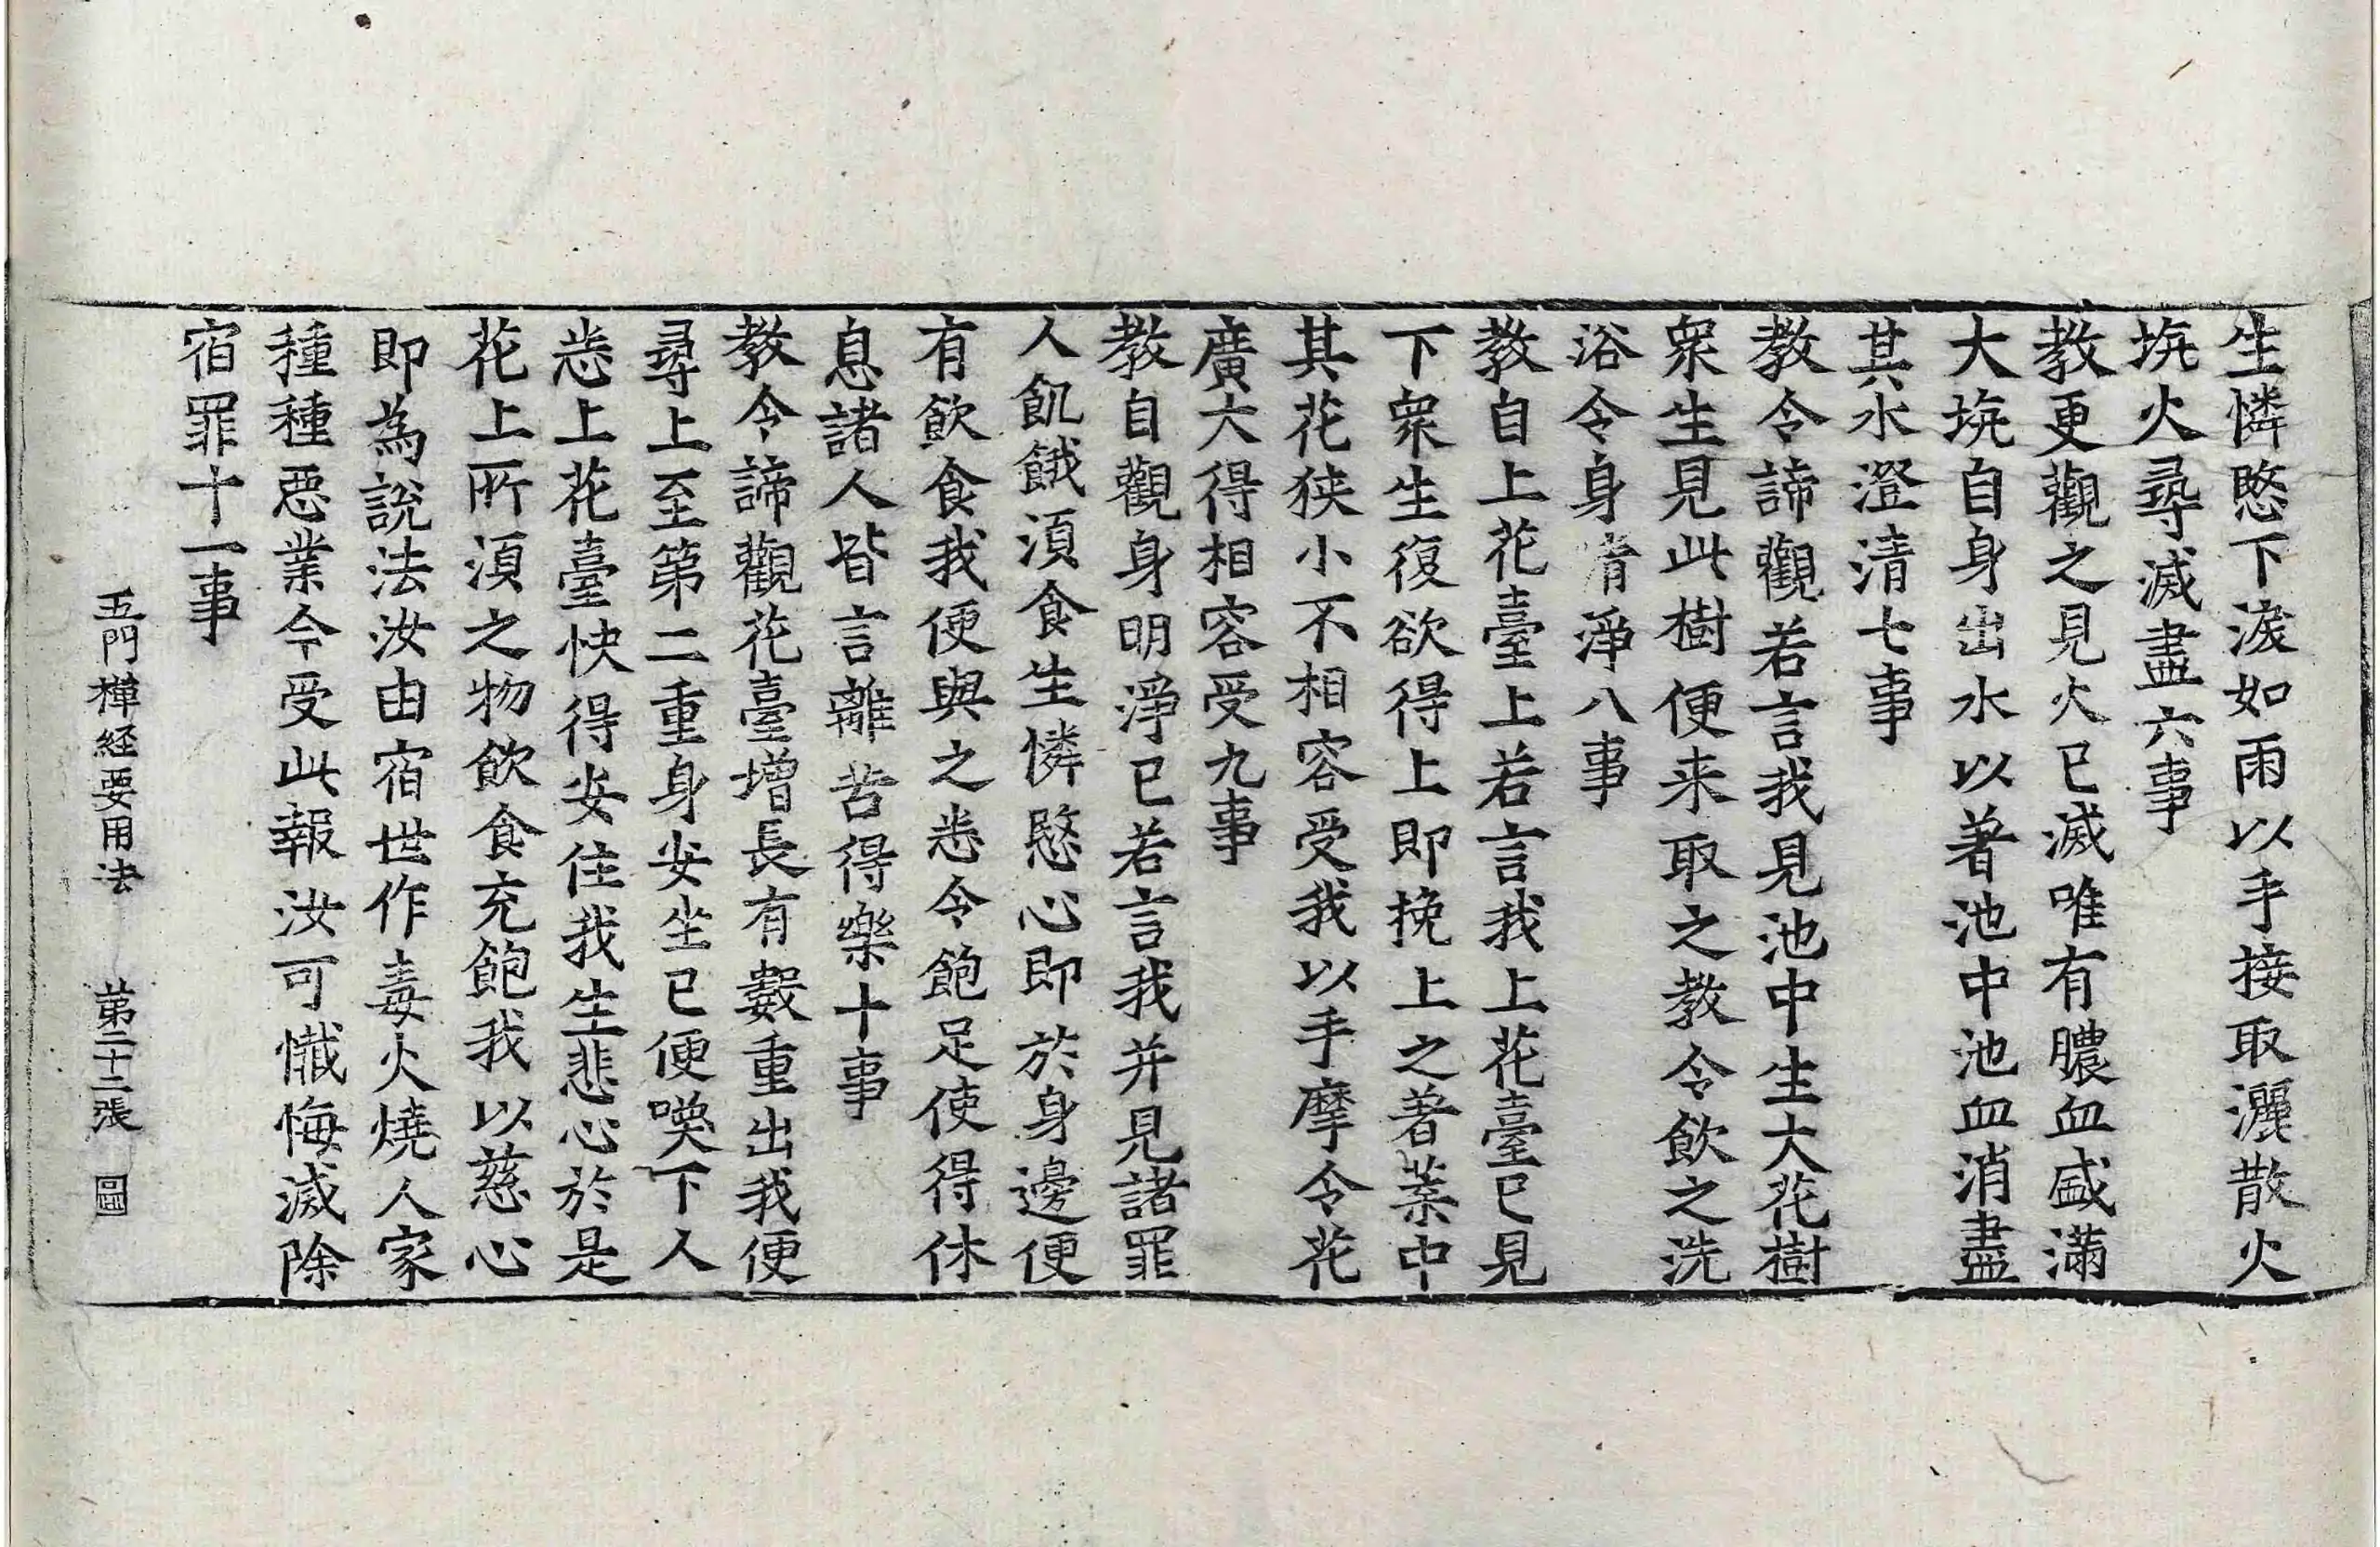 生憐愍下淚如雨以手接取灑散火
坑火尋滅盡六事
教更觀之見火已滅唯有膿血盛滿
大坑自身出水以著池中池血消盡
其水澄清七事
教令諦觀若言我見池中生大花樹
眾生見此樹便来取之教令飲之洗
浴令身清淨八事
教自上花臺上若言我上花臺已見
下眾生復欲得上即挽上之著葉中
其花狹小不相容受我以手摩令花
廣大得相容受九事
教自觀身明淨已若言我并見諸罪
人飢餓須食生憐愍心即於身邊便
有飲食我便與之悉令飽足使得休
息諸人皆言離苦得樂十事
教令諦觀花臺增長有數重出我便
尋上至第二重身安坐已便喚下人
悉上花臺快得安住我生悲心於是
花上所須之物飲食充飽我以慈心
即為說法汝由宿世作毒火燒人家
種種惡業今受此報汝可懺悔滅除
宿罪十一事
五門禪経要用法 第二十二張 圖